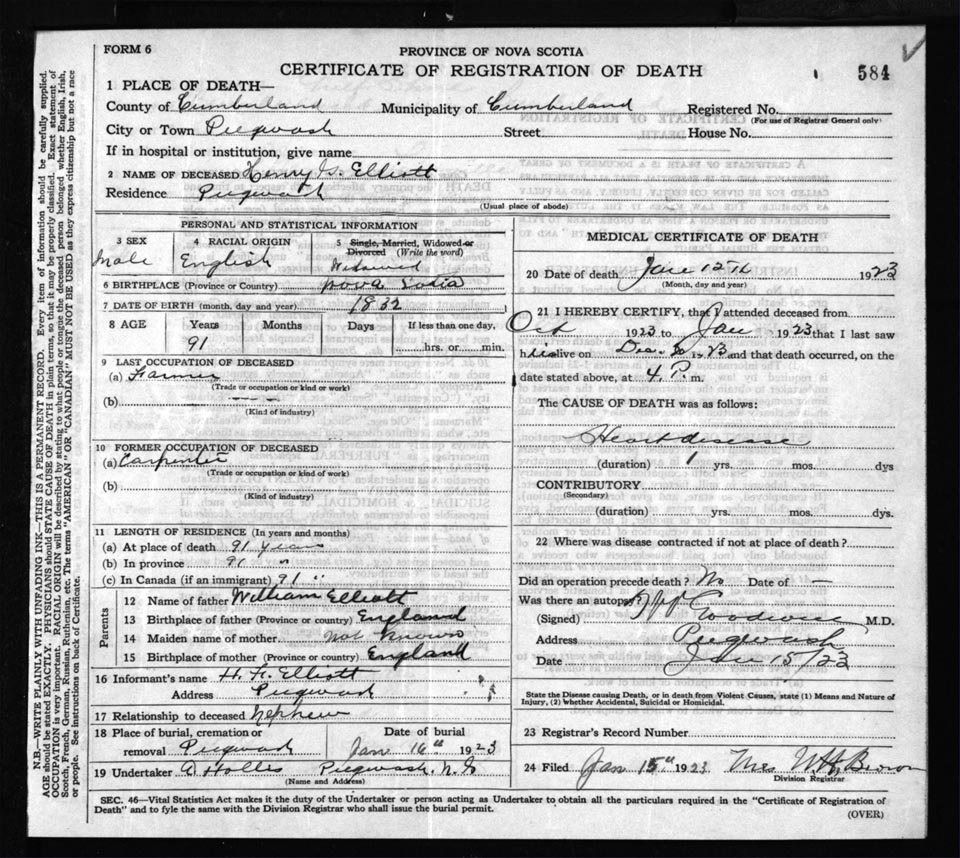 FORM 6
PROVINCE OF NOVA SCOTIA
CERTIFICATE OF REGISTRATION OF DEATH
584
1 PLACE OF DEATH—
County of Cumberland Municipality of Cumberland Registered No.
(For use of Registrar General only)
City or Town Pugwash Street House No.
If in hospital or institution, give name
2 NAME OF DECEASED Henry G. Elliott
Residence Pugwash
(Usual place of abode)
PERSONAL AND STATISTICAL INFORMATION
3 SEX 4 RACIAL ORIGIN 5 Single, Married, Widowed or Divorced (Write the word)
Male English Widowed
6 BIRTHPLACE (Province or Country) Nova Scotia
7 DATE OF BIRTH (month, day and year) 1832
8 AGE Years Months Days If less than one day,
91 hrs. or min.
9 LAST OCCUPATION OF DECEASED
(a) Farmer
(Trade or occupation or kind or work)
(b)
(Kind of industry)
10 FORMER OCCUPATION OF DECEASED
(a) Carpenter
(Trade or occupation or kind of work)
(b)
(Kind of industry)
11 LENGTH OF RESIDENCE (In years and months)
(a) At place of death 91 years
(b) In province 91 "
(c) In Canada (if an immigrant) 91 "
Parents
12 Name of father William Elliott
13 Birthplace of father (Province or country) England
14 Maiden name of mother not known
15 Birthplace of mother (Province or country) England
16 Informant's name H. F. Elliott
Address Pugwash
17 Relationship to deceased Nephew
18 Place of burial, cremation or removal Pugwash Date of burial Jan 16th 1923
19 Undertaker A Hollis Pugwash. N.S
(Name and Address)
MEDICAL CERTIFICATE OF DEATH
20 Date of death Jan 12th 1923
(Month, day and year)
21 I HEREBY CERTIFY, that I attended deceased from
Oct 1923 to Jan 1923 that I last saw
h is alive on Dec. 30 1923 and that death occurred, on the
date stated above, at 4 P. m.
The CAUSE OF DEATH was as follows:
Heart disease
(duration) 1 yrs. mos. dys
CONTRIBUTORY
(Secondary)
(duration) yrs. mos. dys.
22 Where was disease contracted if not at place of death?
Did an operation precede death? No Date of —
Was there an autopsy?
(Signed) Goodwin M.D.
Address Pugwash
Date Jan 15/23
State the Disease causing Death, or in death from Violent Causes, state (1) Means and Nature of
Injury, (2) whether Accidental, Suicidal or Homicidal.
23 Registrar's Record Number
24 Filed Jan 15th 1923 Mrs W H Brown
Division Registrar
SEC. 46—Vital Statistics Act makes it the duty of the Undertaker or person acting as Undertaker to obtain all the particulars required in the "Certificate of Registration of
Death" and to fyle the same with the Division Registrar who shall issue the burial permit.
(OVER)
N.B.—WRITE PLAINLY WITH UNFADING INK—THIS IS A PERMANENT RECORD. Every item of information should be carefully supplied.
AGE should be stated EXACTLY. PHYSICIANS should STATE CAUSE OF DEATH in plain terms, so that it may be properly classified. Exact statement of
OCCUPATION is very important. RACIAL ORIGIN will be described by stating to what people or tongue the deceased person belonged whether English, Irish,
Scotch, French, German, Russian, Ruthenian, etc. The terms "AMERICAN" or "CANADIAN" MUST NOT BE USED as they express citizenship but not a race
or people. See instructions on back of Certificate.